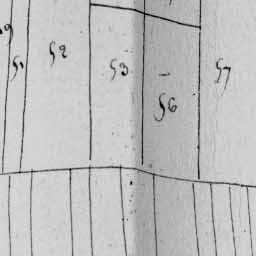 51 52 53 57
56